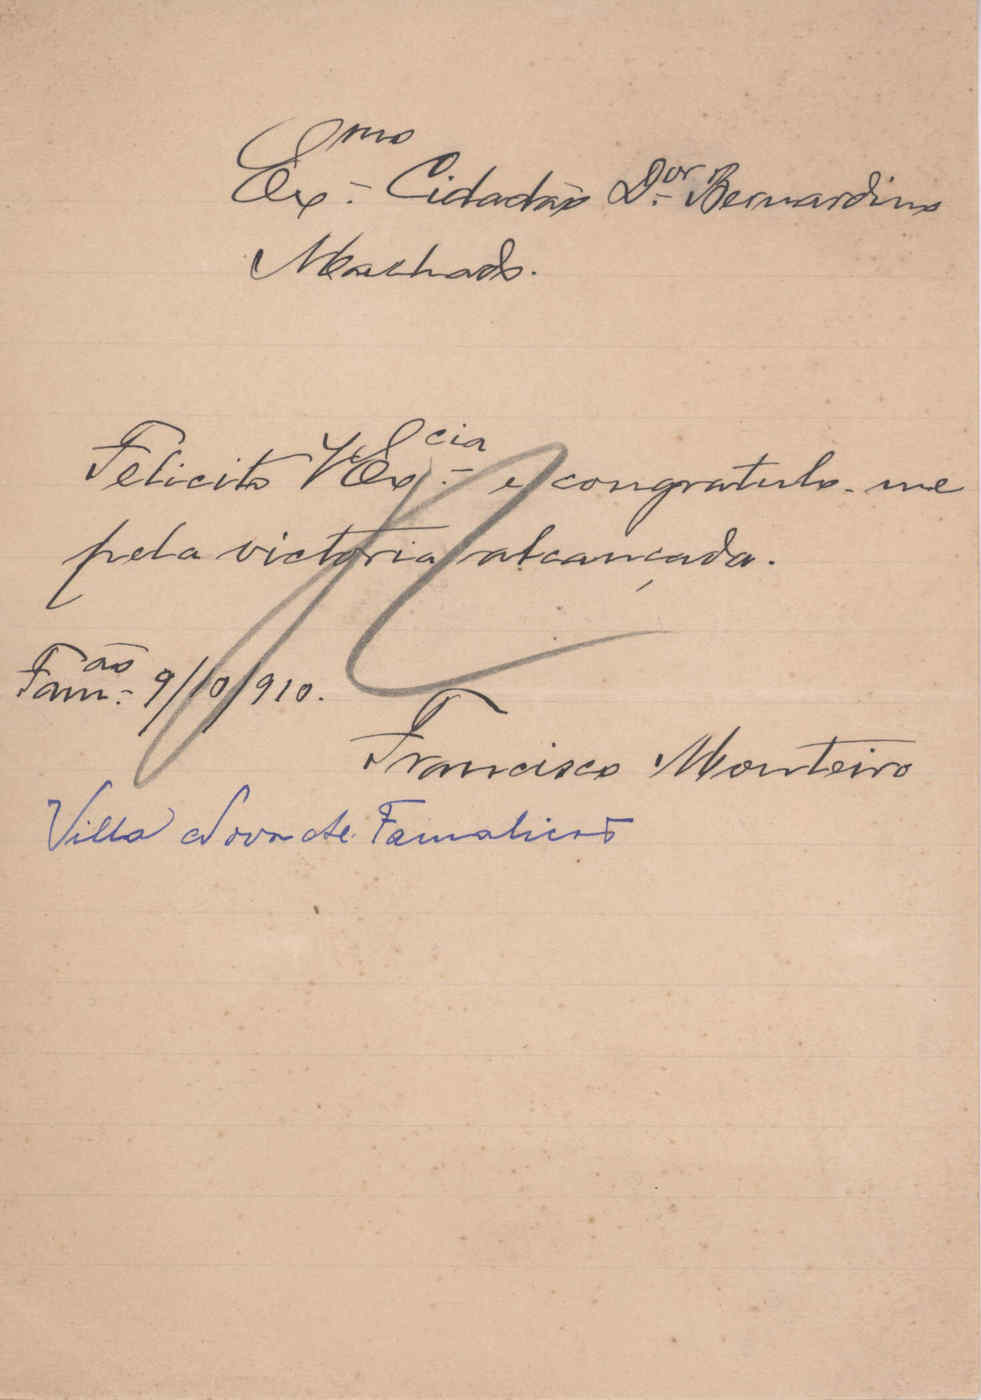 Exmo. Cidadão Dor. Bernardino
Machado.
Felicito VExcia. e congratulo-me
pela victoria alcançada.
Famão. 9/10/910.
Francisco Monteiro
Villa Nova de Famalicão